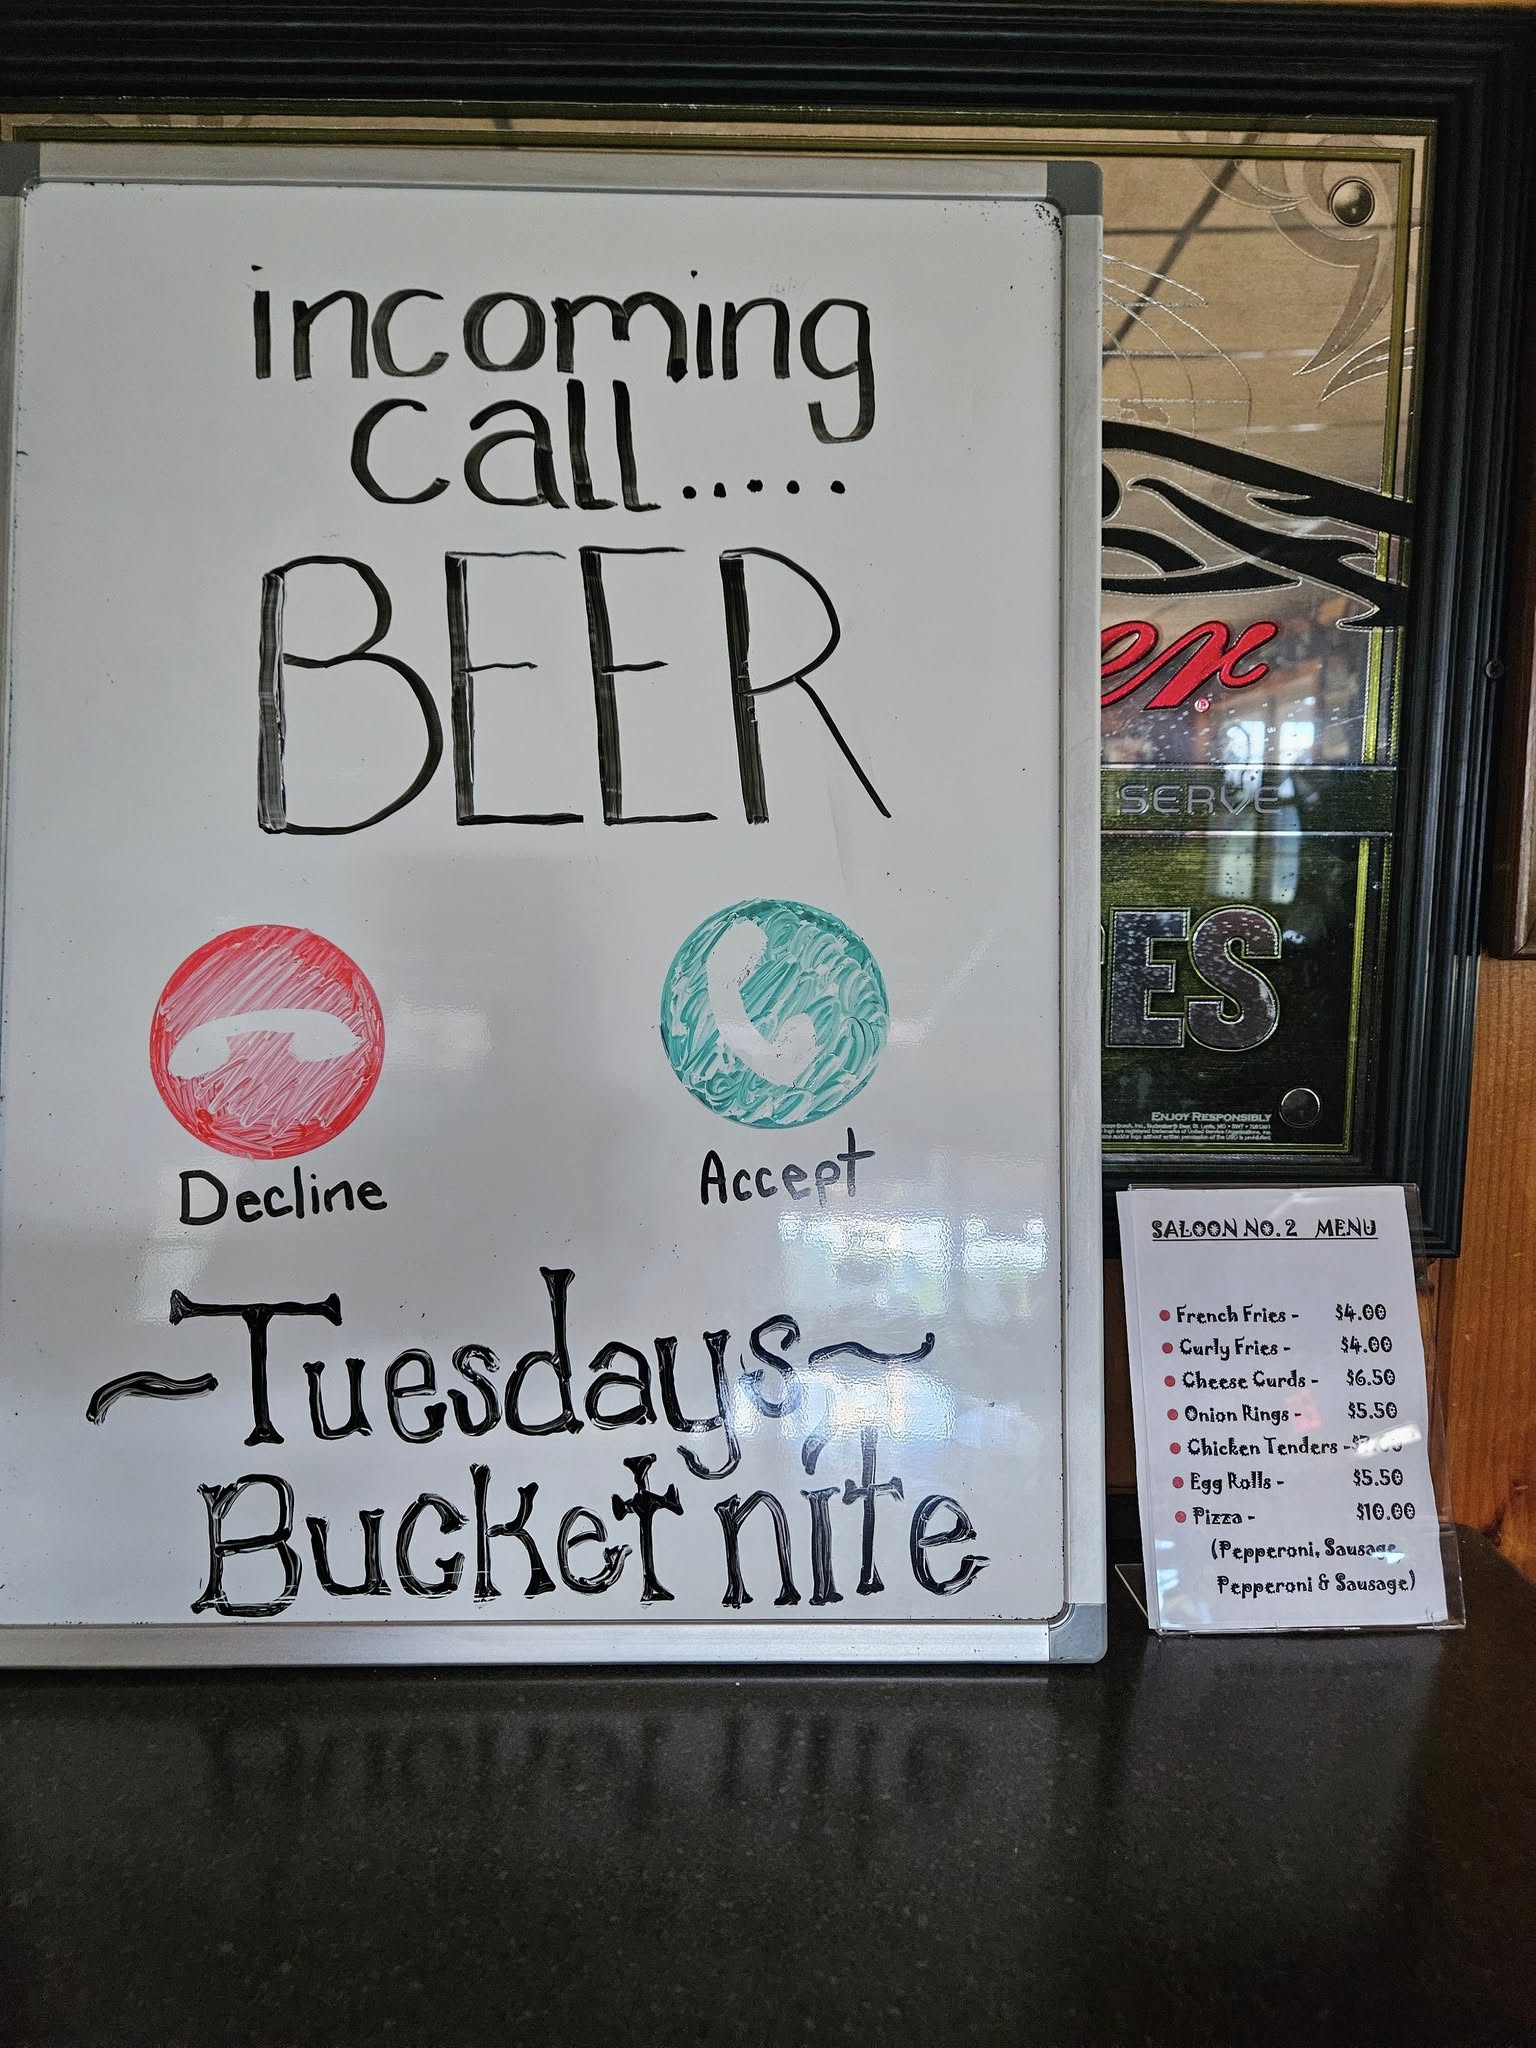 incoming
call.....
BEER
Decline
Accept
~Tuesdays~
Bucket nite
er®
SERVE
ES
ENJOY RESPONSIBLY
SALOON NO. 2 MENU
French Fries - $4.00
Curly Fries - $4.00
Cheese Curds - $6.50
Onion Rings - $5.50
Chicken Tenders -
Egg Rolls - $5.50
Pizza - $10.00
(Pepperoni, Sausage
Pepperoni & Sausage)